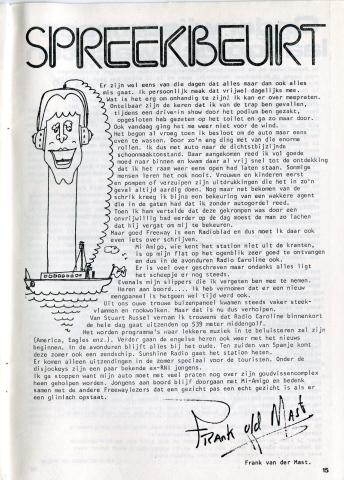 SPREEKBEURT
Er zijn wel eens van die dagen dat alles maar dan ook alles
mis gaat. Ik persoonlijk maak dat vrijwel dagelijks mee.
Wat is het erg om onhandig te zijn! Ik kan er over meepraten.
Ontelbaar zijn de keren dat ik van de trap ben gevallen,
tijdens een drive-in show door het podium ben gezakt,
opgesloten heb gezeten op het toilet en ga zo maar door.
Ook vandaag ging het me weer niet voor de wind.
Het begon al vroeg toen ik besloot om de auto maar eens
even te wassen. Door zo'n ding met van die enorme
rollen. Ik dus met auto naar de dichtstbijzijnde
schoonmaaktoestand. Daar aangekomen reed ik vol goede
moed naar binnen en kwam daar al vrij snel tot de ontdekking
dat ik het raam weer eens open had laten staan. Sommige
mensen leren het ook nooit. Vrouwen en kinderen eerst
en pompen of verzuipen zijn uitdrukkingen die het in zo'n
geval altijd aardig doen. Nog maar net bekomen van de
schrik kreeg ik bijna een bekeuring van een wakkere agent
die in de gaten had dat ik zonder autogordel reed.
Toen ik hem vertelde dat deze gekrompen was door een
onvrijwillig bad eerder op de dag moest de man zo lachen
dat hij vergat om mij te bekeuren.
Maar goed Freeway is een Radioblad en dus moet ik daar ook
even iets over schrijven.
Mi Amigo, wie kent het station niet uit de kranten,
is op mijn flat op het ogenblik zeer goed te ontvangen
en dus in de avonduren Radio Caroline ook.
Er is veel over geschreven maar ondanks alles ligt
het scheepje er nog steeds.
Evenals mijn slippers die ik vergeten ben mee te nemen.
Heren aan boord..... ik heb vernomen dat er een nieuw
mengpaneel is hetgeen wel tijd werd ook.
Uit ons ouwe trouwe buizenpaneel kwamen steeds vaker steek-
vlammen en rookwolken. Maar dat is nu dus verholpen.
Van Stuart Russel vernam ik trouwens dat Radio Caroline binnenkort
de hele dag gaat uitzenden op 539 meter middengolf.
Het worden programma's waar lekkere muziek in te beluisteren zal zijn
(America, Eagles enz.). Verder gaan de engelse heren ook weer met het nieuws
beginnen. In de avonduren blijft alles bij het oude. Ten zuiden van Spanje komt
deze zomer ook een zendschip. Sunshine Radio gaat het station heten.
Er komen alleen uitzendingen in de zomer speciaal voor de touristen. Onder de
disjockeys zijn een paar bekende ex-RNI jongens.
Ik ga stoppen want mijn auto moet met veel praten nog over zijn goudvissencomplex
heen geholpen worden. Jongens aan boord blijf doorgaan met Mi-Amigo en bedenk
samen met de andere Freewaylezers dat een gezicht pas een echt gezicht is als er
een glimlach opstaat.
Frank vd Mast
Frank van der Mast.
15